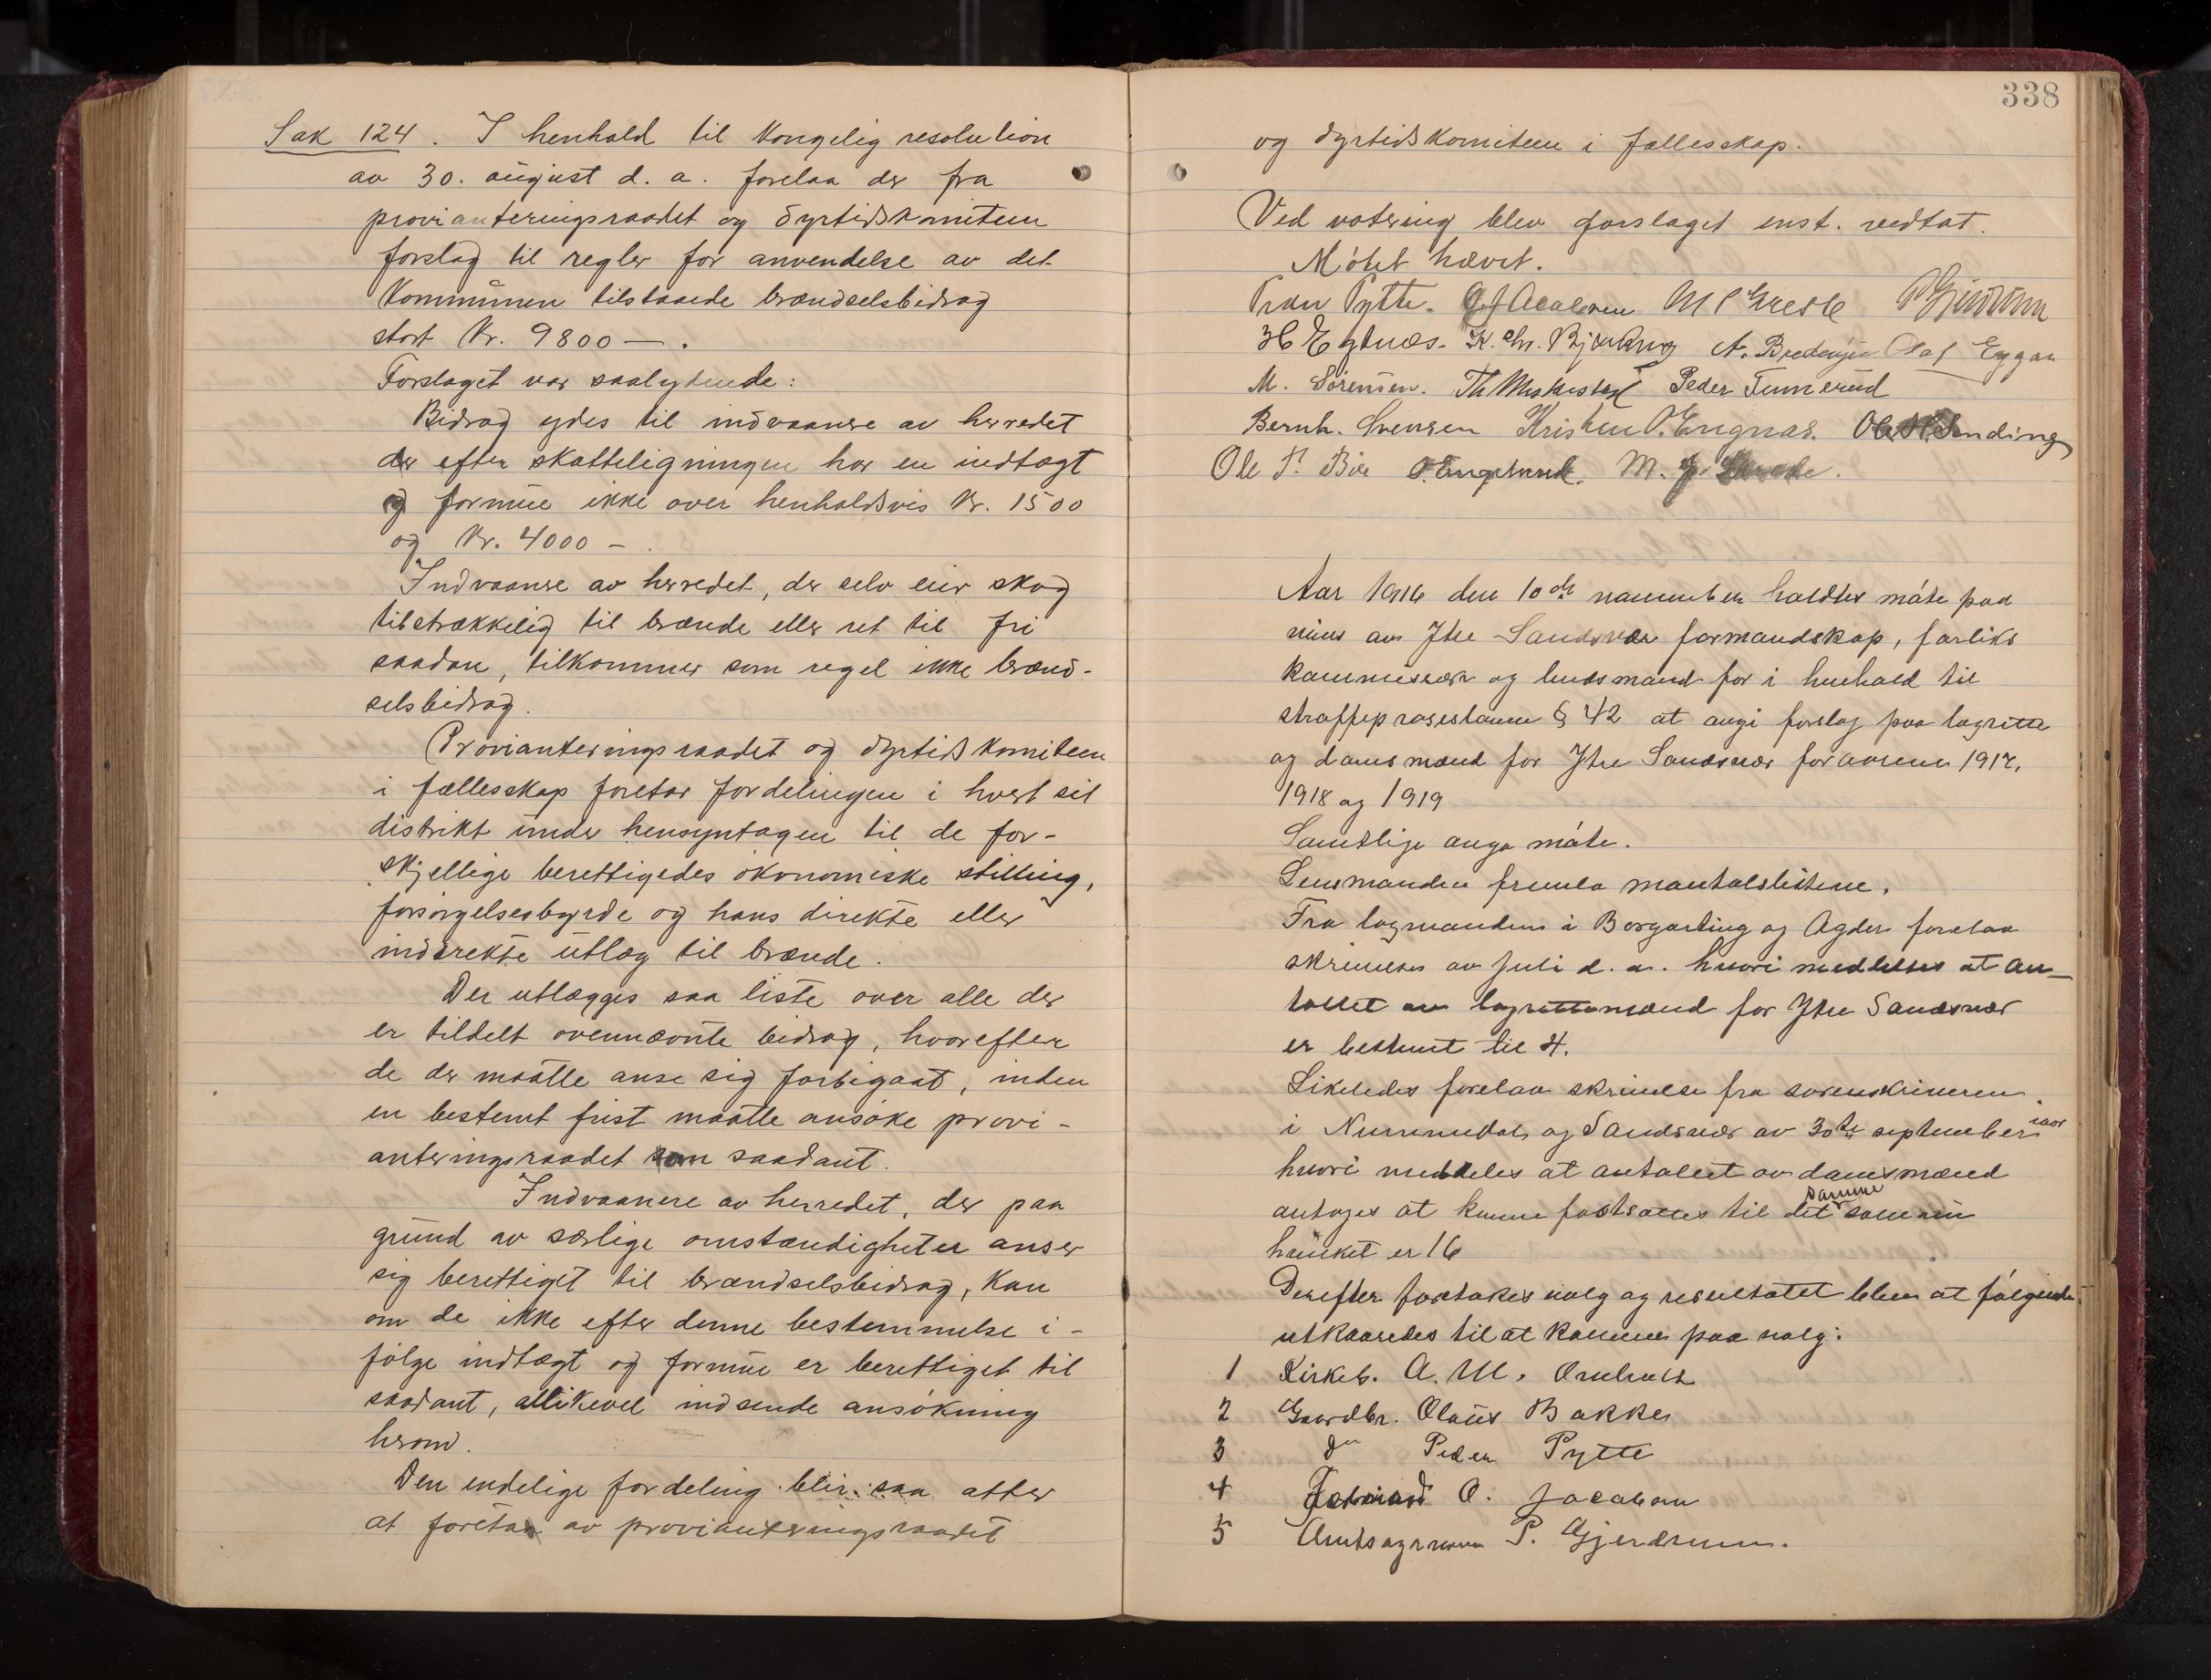 Sak 124. I henhold til kongelig resolution
av 30. august d. a. forelaa der fra
provianteringsraadet og dyrtidskomiteen
forslag til regler for anvendelse av det
Kommunen tilstaaede brændselsbidrag
stort Kr. 9800 — .
Forslaget var saalydende:
Bidrag ydes til indvaanere av herredet
der efter skatteligningen har en indtægt
og formue ikke over henholdsvis Kr. 1500
og Kr. 4000 - .
Indvaanere av herredet, der selv eier skog
tilstrækkelig til brænde eller ret til fri
saadan, tilkommer som regel ikke brænd-
selsbidrag.
Provianteringsraadet og dyrtidskomiteen
i fællesskap foretar fordelingen i hvert sit
distrikt under hensyntagen til de for-
skjellige berettigedes økonomiske stilling,
forsørgelsesbyrde og hans direkte eller
inddirekte utlæg til brænde.
Der utlægges saa liste over alle der
er tildelt ovennævnte bidrag, hvorefter
de der maatte anse sig forbigaat, inden
en bestemt frist maatte ansøke provi-
anteringsraadet om saadant.
Indvaanere av herredet, der paa
grund av særlige omstændigheter anser
sig berettiget til brændselsbidrag, kan
om de ikke efter denne bestemmelse i-
følge indtægt og formue er berettiget til
saadant, allikevel indsende ansøkning
herom.
Den endelige fordeling blir saa atter
at foreta av provianteringsraadet
338
og dyrtidskomiteen i fællesskap.
Ved votering blev forslaget enst. vedtat.
Møtet hævet.
Tran Pytte. Gjerdrum
H Eggnæs. K. Chr. Bjerknes A. Bredesen Olaf Eggan
M. Sørensen. Peder Tunnerud
Bernh. Svensen Kristen O. Engnæs. Ole H. Sending
Ole P. Bive O. Englund. M.
Aar 1916 den 10de november holdtes møte paa
av Ytre Sandsvær formandskap, forliks
kommissær og lensmand for i henhold til
straffeproseslovens § 42 at avgi forslag paa lagrette
og domsmænd for Ytre Sandsvær for aarene 1917,
1918 og 1919
Samtlige avga møte.
Lensmanden fremla mantalslistene.
Fra lagmanden i Borgarting og Agder forelaa
skrivelse av juli d. a. hvori meddeltes at an-
tallet av lagrettemænd for Ytre Sandsvær
er bestemt til 4.
Likeledes forelaa skrivelse fra sorenskriveren
i Nummedal og Sandsvær av 30te september iaar
hvori meddeles at antallet av domsmænd
antages at kunne fastsættes til det samme som nu
hvilket er 16
Derefter foretokes valg og resultatet blev at følgende
utkaaredes til at komme paa valg:
1 Kirkeb. A. M. Omholt
2 Gaardbr. Olaus Bakke
3 do Peder Pytte
4 O. Jacobsen
5 Amtsagronom P. Gjerdrum.